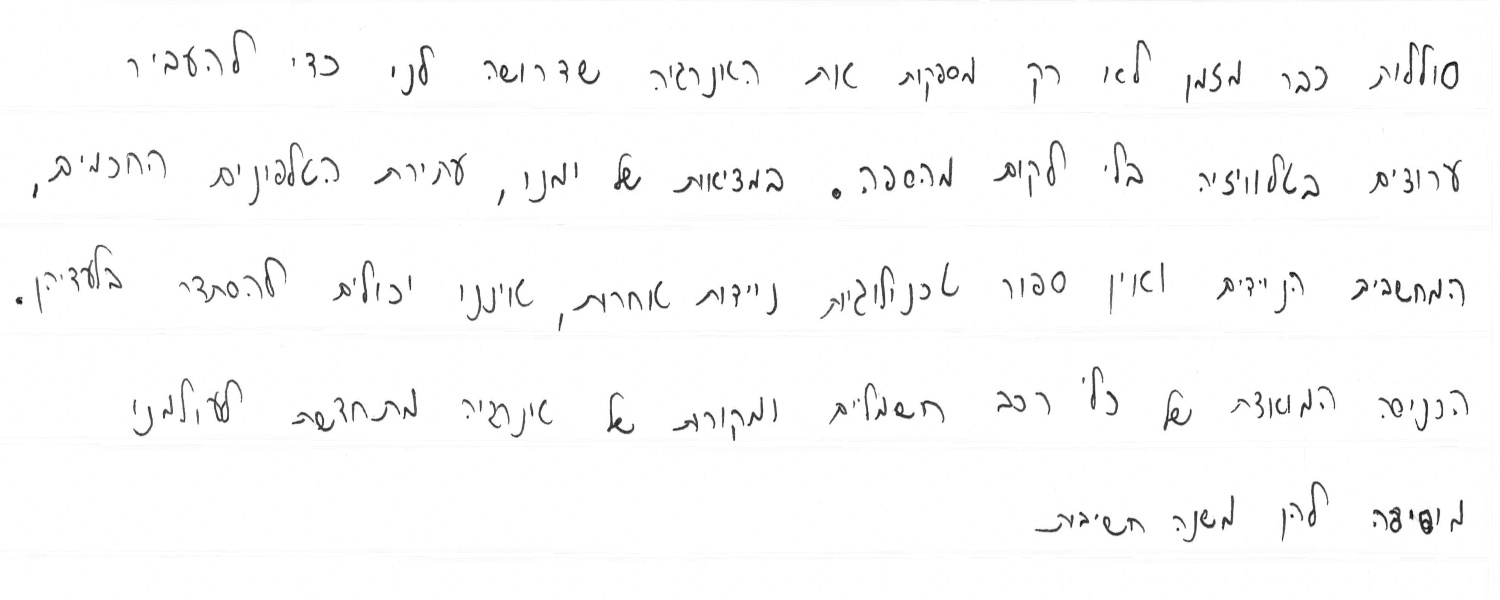 סוללות כבר מזמן לא רק מספקות את האנרגיה שדרושה לנו כדי להעביר
ערוצים בטלוויזיה בלי לקום מהספה. במציאות של ימנו, עתירת הטלפונים החכמים,
המחשבים הניידים ואין ספור טכנולוגיות ניידות אחרות, איננו יכולים להסתדר בלעדיהן.
הכניסה המואצת של כלי רכב חשמליים ומקורות של אינרגיה מתחדשת לעולמנו
מוסיפה להן משנה חשיבות